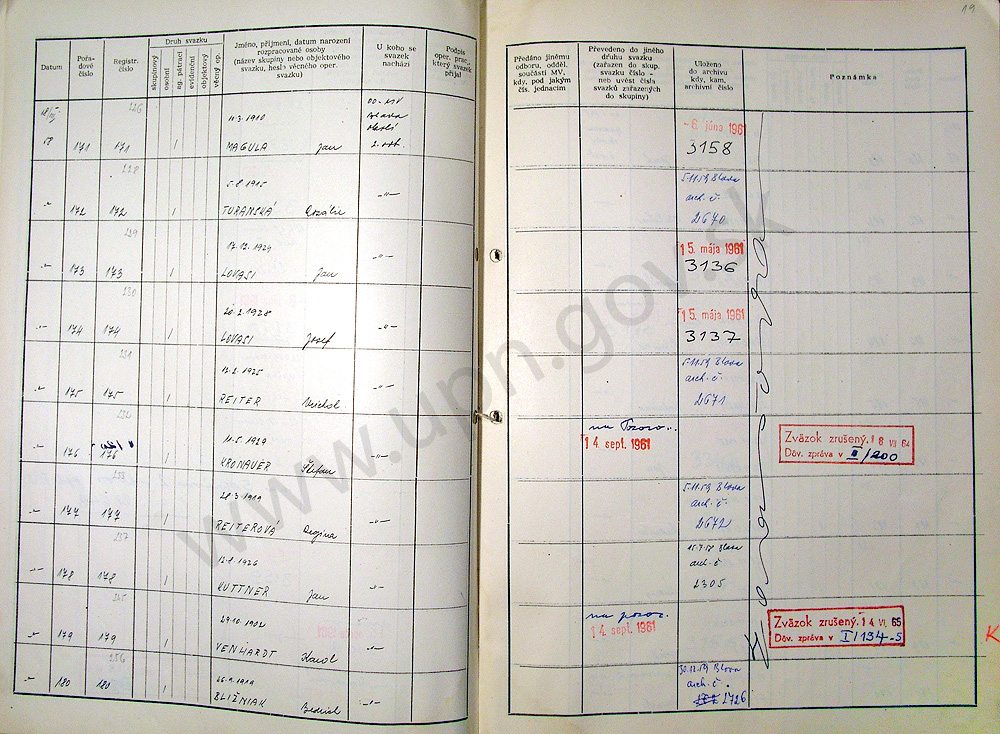 19
Datum
Pořadové číslo
Registr. číslo
Druh svazku
skupinový
osobní
ag. pátrací
evidenční
objektový
věcný op.
Jméno, příjmení, datum narození
rozpracované osoby
(název skupiny nebo objektového
svazku, heslo věcného oper.
svazku)
U koho se
svazek
nachází
Podpis
oper. prac.,
který svazek
přijal
Předáno jinému
odboru, odděl.
součásti MV,
kdy, pod jakým
čís. jednacím
Převedeno do jiného
druhu svazku
(zařazen do skup.
svazku číslo -
neb uvést čísla
svazků zařazených
do skupiny)
Uloženo
do archivu
kdy, kam,
archivní číslo
Poznámka
226
11.3.1910
171 171 1 MAGULA Jan
- 6. júna 1961
3158
228
5.8.1915
172 172 1 TURANSKÁ Rozálie -"-
5.11.59 Blava
arch. č.
2670
229
17.12.1929
173 173 1 LOVASI Jan -"-
15. mája 1961
3136
230
20.2.1928
174 174 1 LOVASI Josef -"-
15. mája 1961
3137
231
175 175 1 REITER -"-
5.11.59 Blava
arch. č.
2671
232
11.5.1929
176 176 1 KRONAUER Štefan -"-
14. sept. 1961
Zväzok zrušený. 18 VII 64
Dôv. zpráva v II/200
233
21.3.1919
177 177 1 REITEROVÁ Regina -"-
5.11.59 Blava
arch. č.
2672
237
178 178 1 KUTTNER Jan -"-
15.7.58 Blava
arch. č.
2305
245
29.10.1902
179 179 1 VENHARDT Karol -"-
na pozor.
14. sept. 1961
Zväzok zrušený. 14. VI. 65
Dôv. zpráva v I/134-5
K
256
26.9.1919
180 180 1 BLIŽNIAK Bedrich -"-
30.12.59 Blava
arch. č.
2726
www.upn.gov.sk